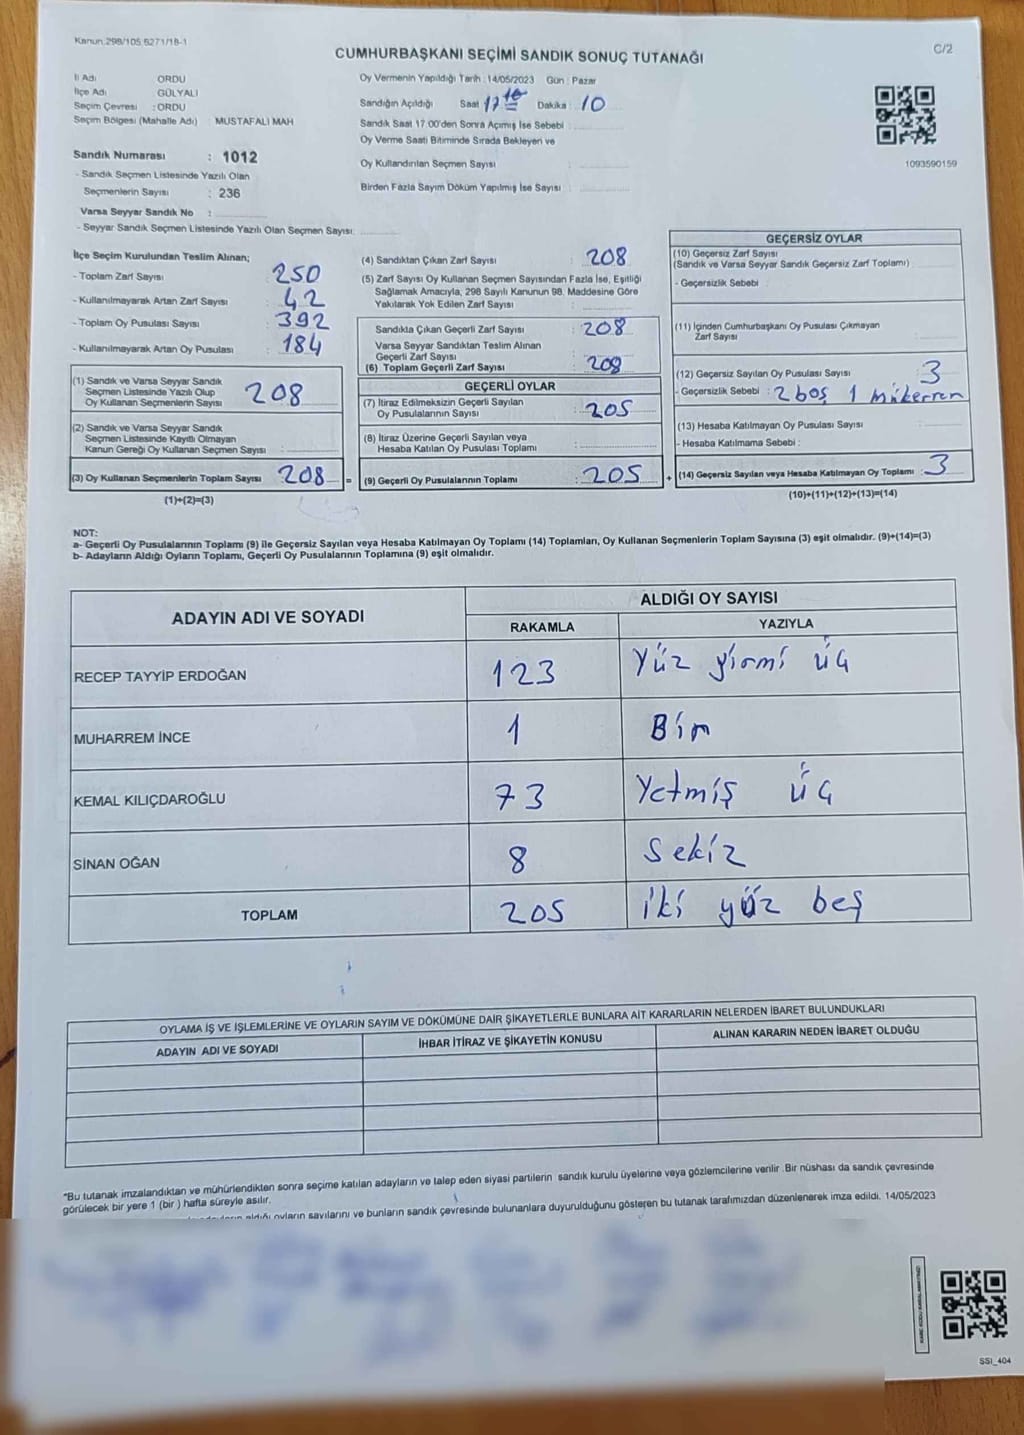 Kanun:298/105,6271/18-1
C/2
CUMHURBAŞKANI SEÇİMİ SANDIK SONUÇ TUTANAĞI
İl Adı ORDU
İlçe Adı GÜLYALI
Seçim Çevresi : ORDU
Seçim Bölgesi (Mahalle Adı) MUSTAFALI MAH
Sandık Numarası : 1012
- Sandık Seçmen Listesinde Yazılı Olan
Seçmenlerin Sayısı : 236
Varsa Seyyar Sandık No :
- Seyyar Sandık Seçmen Listesinde Yazılı Olan Seçmen Sayısı:
Oy Vermenin Yapıldığı Tarih : 14/05/2023 Gün : Pazar
Sandığın Açıldığı Saat 17 Dakika : 10
Sandık Saat 17.00'den Sonra Açımış İse Sebebi :
Oy Verme Saati Bitiminde Sırada Bekleyen ve
Oy Kullandırılan Seçmen Sayısı :
Birden Fazla Sayım Döküm Yapılmış İse Sayısı :
1093590159
İlçe Seçim Kurulundan Teslim Alınan;
- Toplam Zarf Sayısı : 250
- Kullanılmayarak Artan Zarf Sayısı : 42
- Toplam Oy Pusulası Sayısı : 392
- Kullanılmayarak Artan Oy Pusulası : 184
(1) Sandık ve Varsa Seyyar Sandık
Seçmen Listesinde Yazılı Olup
Oy Kullanan Seçmenlerin Sayısı 208
(2) Sandık ve Varsa Seyyar Sandık
Seçmen Listesinde Kayıtlı Olmayan
Kanun Gereği Oy Kullanan Seçmen Sayısı :
(3) Oy Kullanan Seçmenlerin Toplam Sayısı : 208 =
(1)+(2)=(3)
(4) Sandıktan Çıkan Zarf Sayısı : 208
(5) Zarf Sayısı Oy Kullanan Seçmen Sayısından Fazla İse, Eşitliği
Sağlamak Amacıyla, 298 Sayılı Kanunun 98. Maddesine Göre
Yakılarak Yok Edilen Zarf Sayısı :
Sandıkta Çıkan Geçerli Zarf Sayısı : 208
Varsa Seyyar Sandıktan Teslim Alınan
Geçerli Zarf Sayısı :
(6) Toplam Geçerli Zarf Sayısı : 208
GEÇERLİ OYLAR
(7) İtiraz Edilmeksizin Geçerli Sayılan
Oy Pusulalarının Sayısı : 205
(8) İtiraz Üzerine Geçerli Sayılan veya
Hesaba Katılan Oy Pusulası Toplamı :
(9) Geçerli Oy Pusulalarının Toplamı : 205 +
GEÇERSİZ OYLAR
(10) Geçersiz Zarf Sayısı
(Sandık ve Varsa Seyyar Sandık Geçersiz Zarf Toplamı) :
- Geçersizlik Sebebi :
(11) İçinden Cumhurbaşkanı Oy Pusulası Çıkmayan
Zarf Sayısı :
(12) Geçersiz Sayılan Oy Pusulası Sayısı : 3
- Geçersizlik Sebebi : 2 boş 1 mükerrer
(13) Hesaba Katılmayan Oy Pusulası Sayısı :
- Hesaba Katılmama Sebebi :
(14) Geçersiz Sayılan veya Hesaba Katılmayan Oy Toplamı : 3
(10)+(11)+(12)+(13)=(14)
NOT:
a- Geçerli Oy Pusulalarının Toplamı (9) ile Geçersiz Sayılan veya Hesaba Katılmayan Oy Toplamı (14) Toplamları, Oy Kullanan Seçmenlerin Toplam Sayısına (3) eşit olmalıdır. (9)+(14)=(3)
b- Adayların Aldığı Oyların Toplamı, Geçerli Oy Pusulalarının Toplamına (9) eşit olmalıdır.
ADAYIN ADI VE SOYADI ALDIĞI OY SAYISI
RAKAMLA YAZIYLA
RECEP TAYYİP ERDOĞAN 123 Yüz yirmi üç
MUHARREM İNCE 1 Bir
KEMAL KILIÇDAROĞLU 73 Yetmiş üç
SİNAN OĞAN 8 Sekiz
TOPLAM 205 iki yüz beş
OYLAMA İŞ VE İŞLEMLERİNE VE OYLARIN SAYIM VE DÖKÜMÜNE DAİR ŞİKAYETLERLE BUNLARA AİT KARARLARIN NELERDEN İBARET BULUNDUKLARI
ADAYIN ADI VE SOYADI İHBAR İTİRAZ VE ŞİKAYETİN KONUSU ALINAN KARARIN NEDEN İBARET OLDUĞU
"Bu tutanak imzalandıktan ve mühürlendikten sonra seçime katılan adayların ve talep eden siyasi partilerin sandık kurulu üyelerine veya gözlemcilerine verilir. Bir nüshası da sandık çevresinde
görülecek bir yere 1 (bir) hafta süreyle asılır.
aldığı oyların sayılarını ve bunların sandık çevresinde bulunanlara duyurulduğunu gösteren bu tutanak tarafımızdan düzenlenerek imza edildi. 14/05/2023
SSI_404